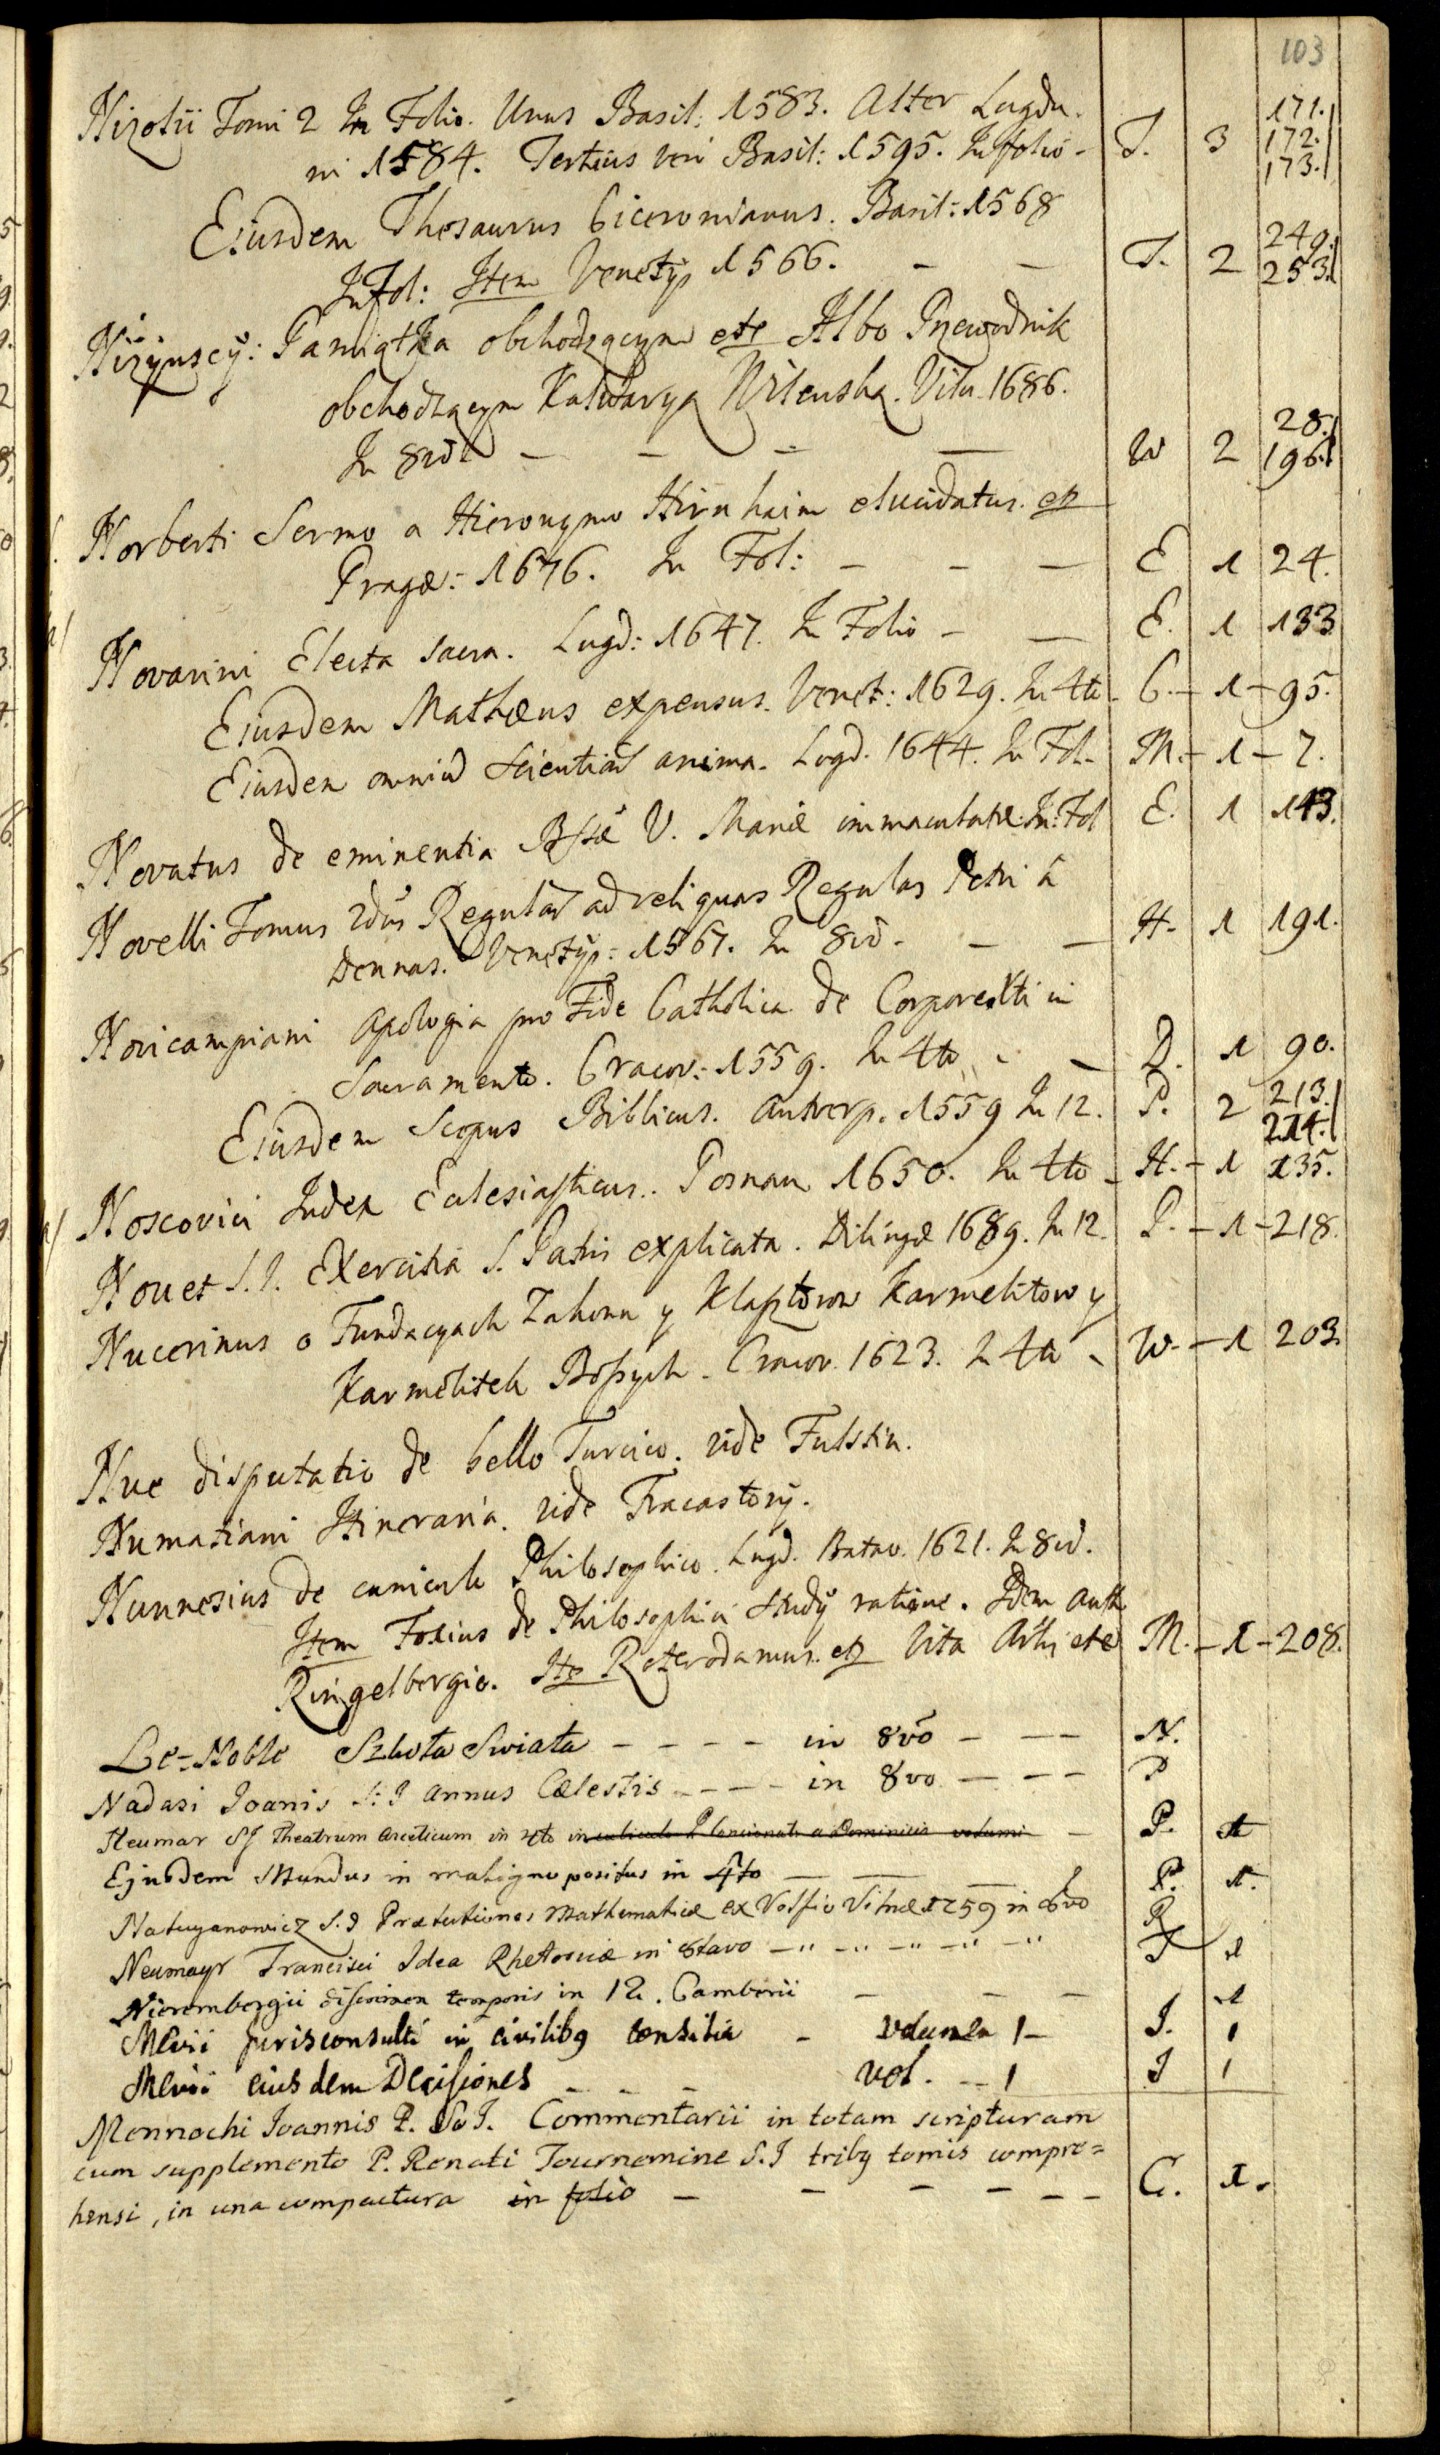 103
Nizolii Tomi 2 In Folio. Unus Basil: 1583. Alter Lugdu.
ni 1584. Tertius vero Basil: 1595. In folio - T. 3 171. 172. 173.
Eiusdem Thesaurus Ciceronianus. Basil: 1568
In Fol: Item Venetijs 1566. - - T. 2 249. 253.
Niżyńscij: Pamiątka obchodzącym etc Albo Przewodnik
obchodzącym Kalwaryą Wilenską. Viln. 1686.
In 8vo - - - - W 2 28. 196.
Norberti Sermo a Hieronymo Hirnhaim elucidatus. etc
Pragæ: 1676. In Fol: - - - E 1 24.
Novarini Electa sacra. Lugd: 1647. In Folio - - E. 1 133
Eiusdem Mathæus expensus. Venet: 1629. In 4to - C. - 1 - 95.
Eiusdem omniu scientiar anima. Lugd. 1644. In Fol. M. - 1 - 7.
Novatus de eminentia Bssæ V. Mariæ immaculatæ. In: Fol E. 1 143.
Novelli Tomus 2dus Regular ad reliquas Regulas Petri à
Dennas. Venetijs: 1567. In 8vo. - - H. 1 191.
Novicampiani Apologia pro Fide Catholica de Corpore Xti in
Sacramento. Cracov: 1559. In 4to - - D. 1 90.
Eiusdem Scopus Biblicus. Antverp. 1559 In 12. P. 2 213. 214.
Noscovici Index Eclesiasticus. Posnan 1650. In 4to - H. - 1 135.
Nouet S.J. Exercitia S. Patris explicata. Dilingæ 1689. In 12. P. - 1 - 218.
Nucerinus o Fundacyach Zakonu y Klasztorow Karmelitow y
Karmelitek Bossych. Cracov. 1623. In 4to - W. - 1 203.
Nue disputatio de bello Turcico. vide Fulstin.
Numatiani Itineraria. vide Fracastorij.
Nunnesius de cuniculo Philosophico. Lugd. Batav. 1621. In 8vo.
Item Foxius de Philosophici Studij ratione. Idem auth
Ringelbergio. Ite Roterodamus. etc Vita Arti etc M. - 1 - 208.
Le-Noble Szkoła Swiata - - - - in 8vo - - - N.
Nadasi Joanis S: J annus Cælestis - - - - in 8vo - - - P
Neumar SJ Theatrum Asceticum in 4to in cubiculo P Concionatoris a Dominicis - P. 1
Ejusdem Mundus in maligno positus in 4to - - - P. 1.
Natuyanowicz S.J Prælectiones Mathematicæ ex Volfio Vilnæ 1759 in 8vo R
Neumayr Francisci Idea Rhetoricæ in 8tavo - " - " - " - " - " T 1
Nierembergii discrimen temporis in 12. Camberii - - - 1
Mevii jurisconsulti in civilibg consilia - volumen 1 - J. 1
Mevii eiusdem Decisiones - - - vol. - 1 J 1
Mennochi Joannis P. So J. Commentarii in totam scripturam
cum supplemento P. Renati Tournemine S.J tribg tomis compre=
hensi, in una compactura in folio - - - - - - C. 1.